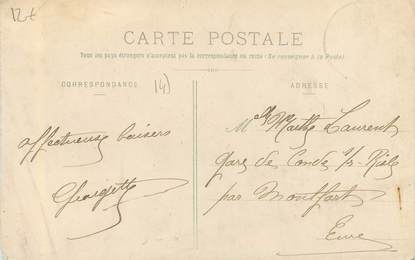 12 €
CARTE POSTALE
Tous les pays étrangers n'acceptent pas la correspondance au recto (Se renseigner à la Poste)
CORRESPONDANCE
(4)
ADRESSE
affectueux baisers
Georgette
Mlle Marthe Laurent
Gare de Condé s/ Risle
par Montfort
Eure